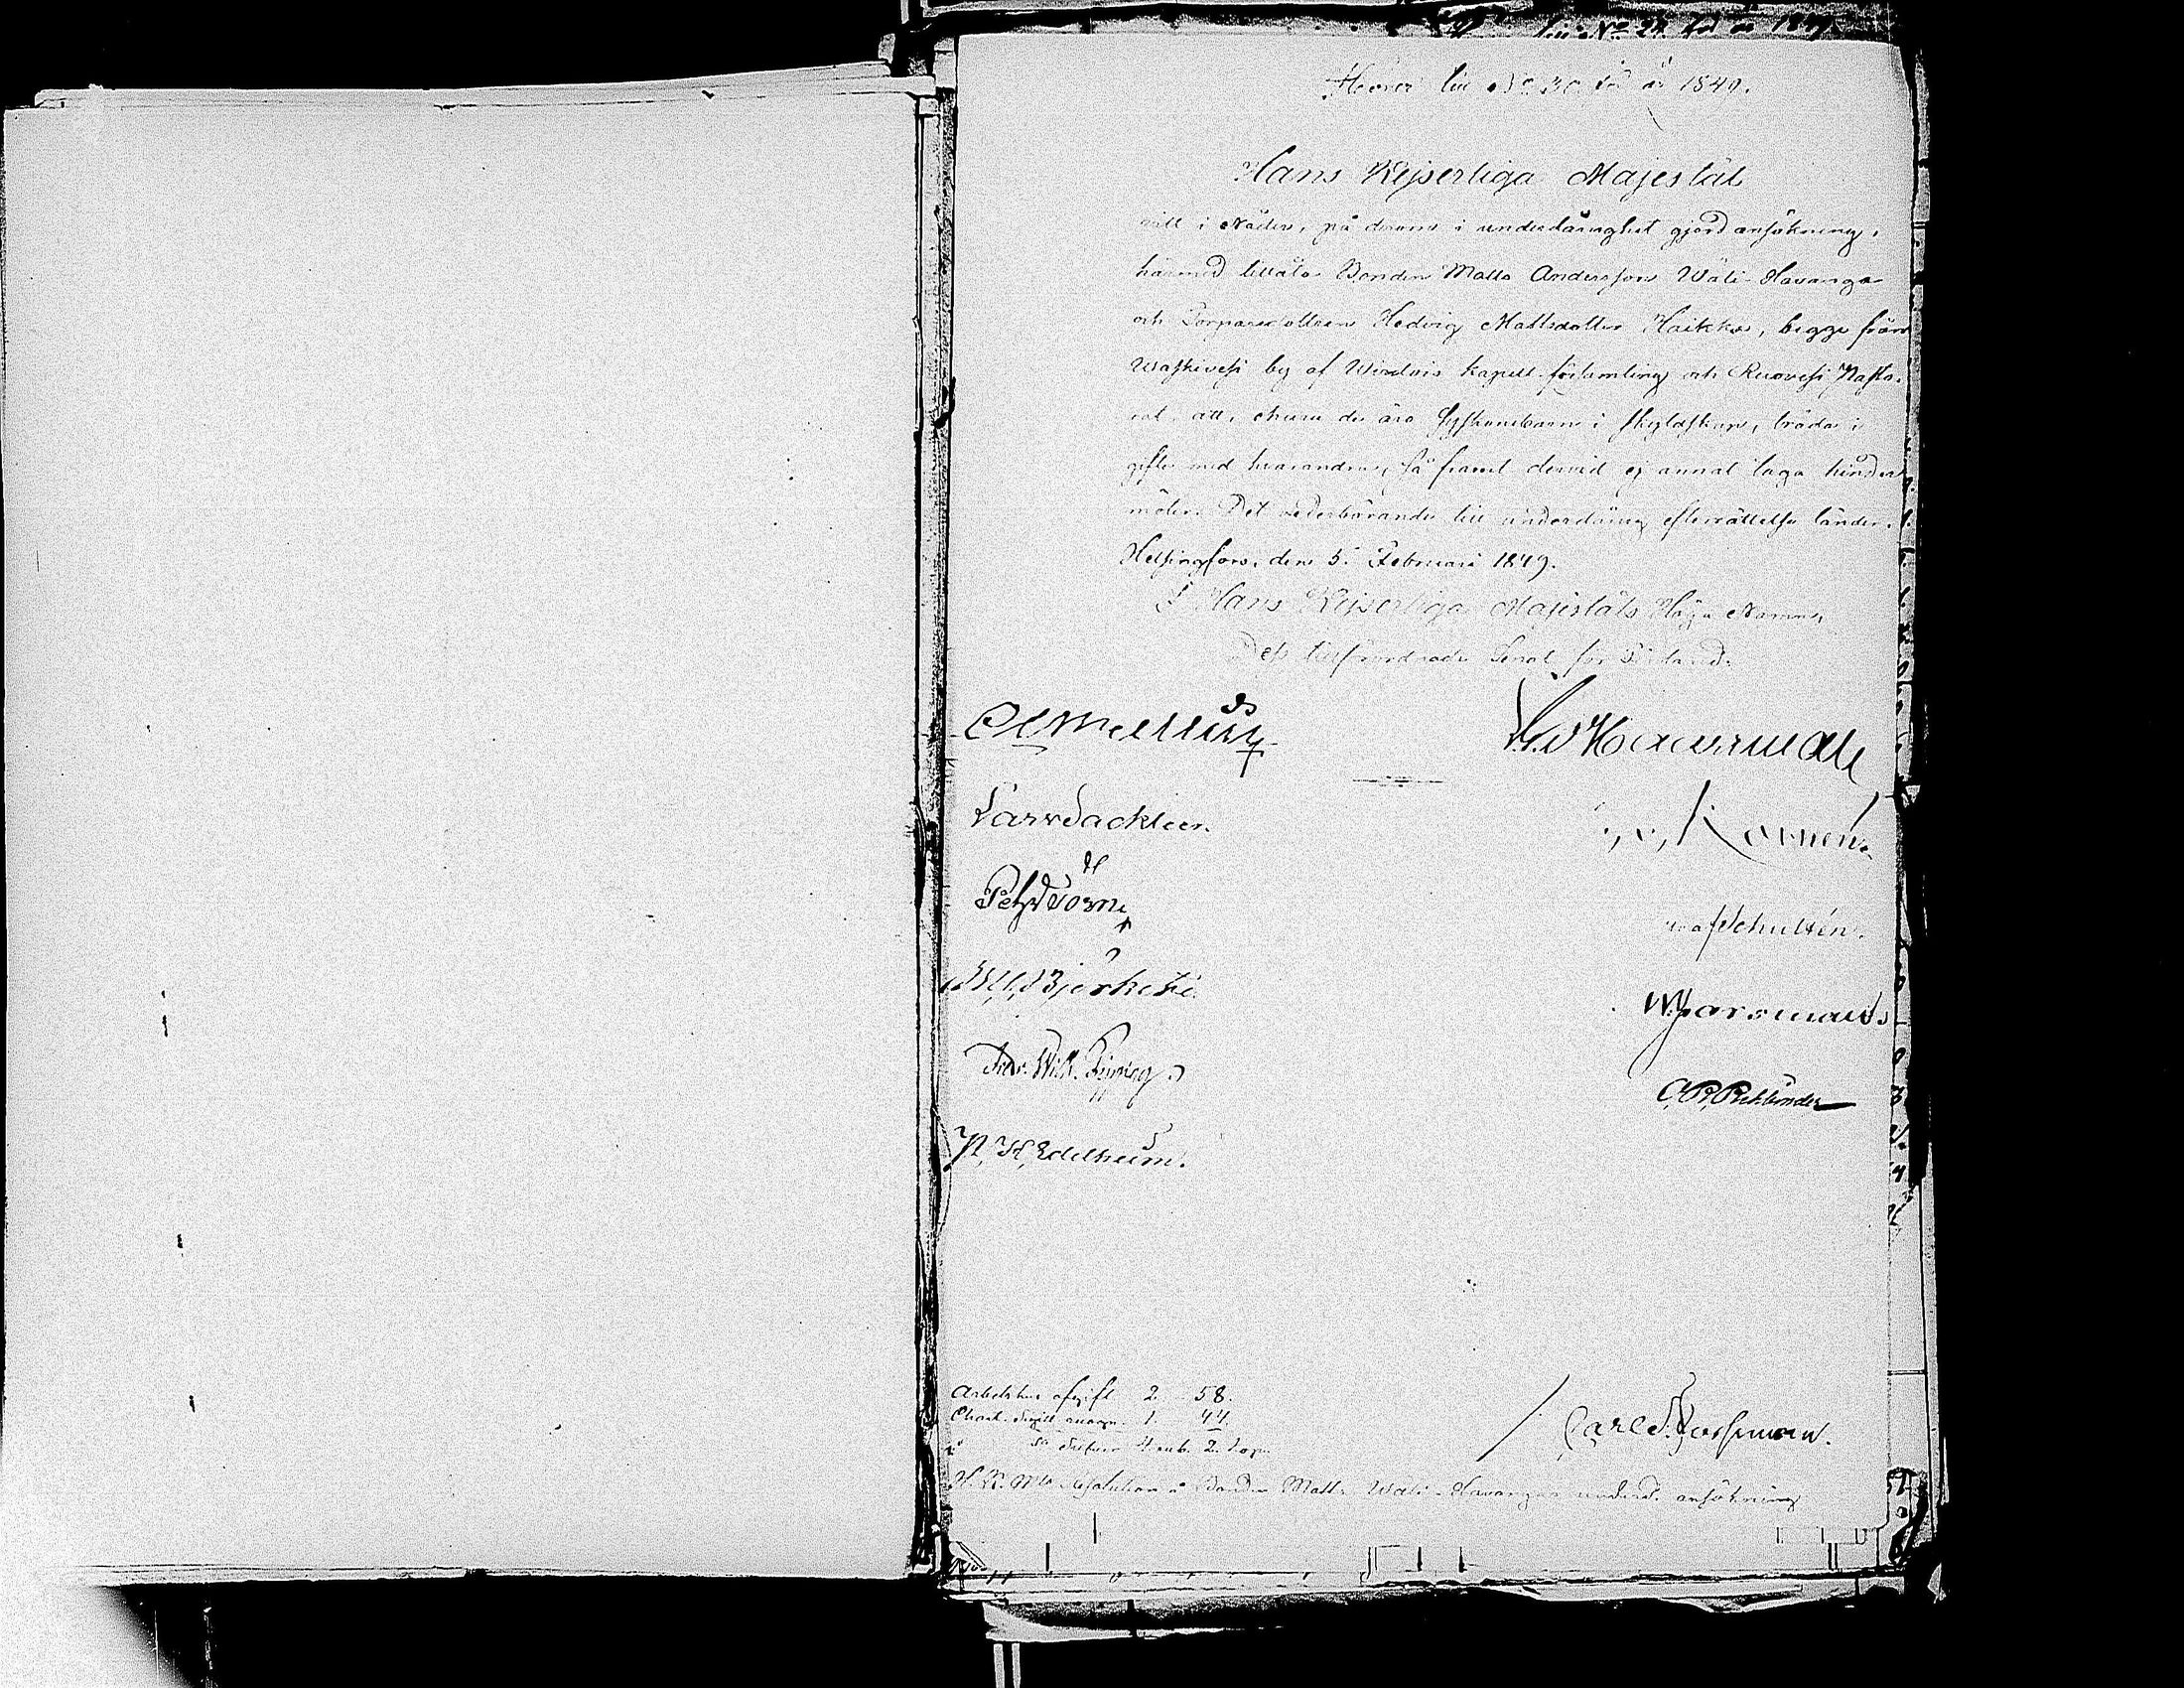 till No 28 för år 1849.
Hörer till No 30 för år 1849.
Hans Kejserliga Majestät
vill i Nåder, på derom i underdånighet gjord ansökning,
härmed tillåta Bonden Matts Andersson Wäli-Havanga
och Torparedottren Hedvig Mattsdotter Haikka, begge från
Waskivesi by af Wirdois kapell-församling och Ruovesi Pasto-
rat, att, ehuru de äro Syskonebarn i skyldskap, träda i
gifte med hvarandra, så framt dervid ej annat laga hinder
möter. Det vederbörande till underdånig efterrättelse länder.
Helsingfors, den 5 Februari 1849.
I Hans Kejserliga Majestäts Höga Namn,
Dess tillförordnade Senat för Finland:
C. E. Mellin
L. v. Haartman
Lars Sackleen.
Petr Törne
af Schultén.
Björksten
Fredr. Wilh. Pipping
C. R. Rehbinder
P. H. Edelheim.
Arbetshus afgift 2. 58.
Chart. Sigill 1. 44.
Sa Silfver 4 rub. 2 kop.
Carl Forsman.
H. K. M:ts Resolution å Bonden Matts Wäli-Havangas underd. ansökning